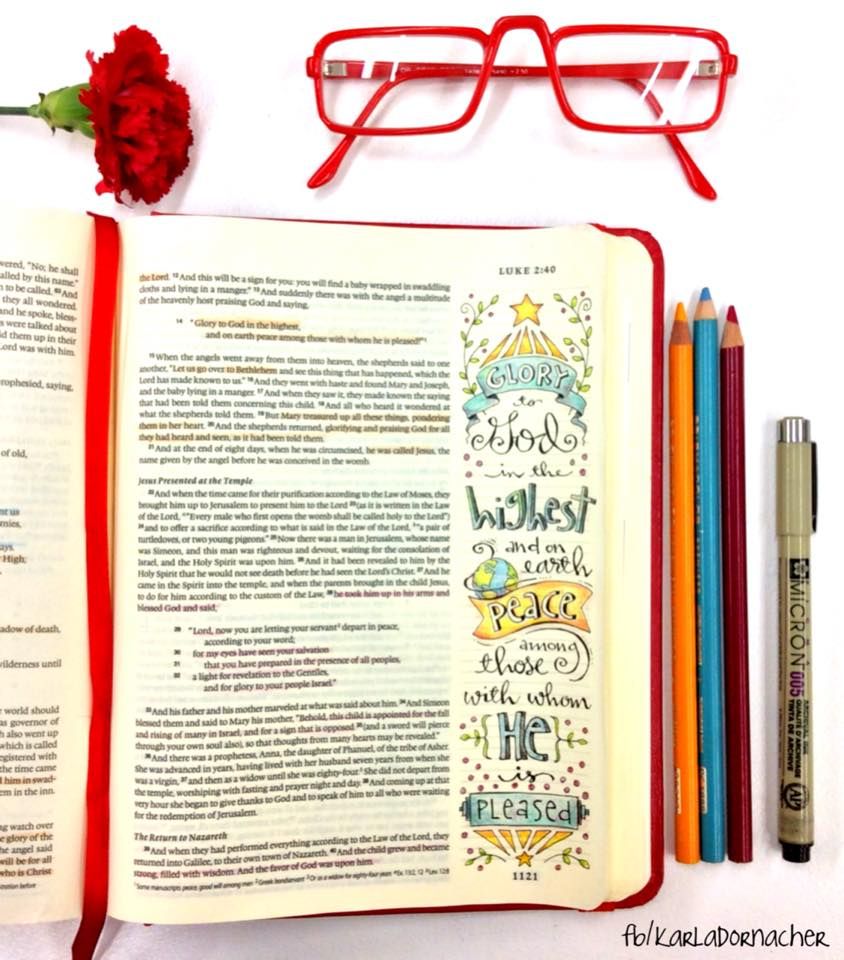 wered, "No; he shall
alled by this name."
n to be called, 63And
they all wondered.
and he spoke, bless-
s were talked about
id them up in their
Lord was with him.
rophesied, saying,
of old,
nt us
mies,
ays.
High;
adow of death,
vilderness until
e world should
as governor of
h also went up
which is called
egistered with
the time came
d him in swad-
em in the inn.
ng watch over
e glory of the
he angel said
will be for all
who is Christ
LUKE 2:40
the Lord. 12 And this will be a sign for you: you will find a baby wrapped in swaddling
cloths and lying in a manger." 13 And suddenly there was with the angel a multitude
of the heavenly host praising God and saying,
14 "Glory to God in the highest,
and on earth peace among those with whom he is pleased!"1
15 When the angels went away from them into heaven, the shepherds said to one
another, "Let us go over to Bethlehem and see this thing that has happened, which the
Lord has made known to us." 16 And they went with haste and found Mary and Joseph,
and the baby lying in a manger. 17 And when they saw it, they made known the saying
that had been told them concerning this child. 18 And all who heard it wondered at
what the shepherds told them. 19 But Mary treasured up all these things, pondering
them in her heart. 20 And the shepherds returned, glorifying and praising God for all
they had heard and seen, as it had been told them.
21 And at the end of eight days, when he was circumcised, he was called Jesus, the
name given by the angel before he was conceived in the womb.
Jesus Presented at the Temple
22 And when the time came for their purification according to the Law of Moses, they
brought him up to Jerusalem to present him to the Lord 23 (as it is written in the Law
of the Lord, "Every male who first opens the womb shall be called holy to the Lord")
24 and to offer a sacrifice according to what is said in the Law of the Lord, "a pair of
turtledoves, or two young pigeons." 25 Now there was a man in Jerusalem, whose name
was Simeon, and this man was righteous and devout, waiting for the consolation of
Israel, and the Holy Spirit was upon him. 26 And it had been revealed to him by the
Holy Spirit that he would not see death before he had seen the Lord's Christ. 27 And he
came in the Spirit into the temple, and when the parents brought in the child Jesus,
to do for him according to the custom of the Law, 28 he took him up in his arms and
blessed God and said,
29 "Lord, now you are letting your servant2 depart in peace,
according to your word;
30 for my eyes have seen your salvation
31 that you have prepared in the presence of all peoples,
32 a light for revelation to the Gentiles,
and for glory to your people Israel."
33 And his father and his mother marveled at what was said about him. 34 And Simeon
blessed them and said to Mary his mother, "Behold, this child is appointed for the fall
and rising of many in Israel, and for a sign that is opposed 35 (and a sword will pierce
through your own soul also), so that thoughts from many hearts may be revealed."
36 And there was a prophetess, Anna, the daughter of Phanuel, of the tribe of Asher.
She was advanced in years, having lived with her husband seven years from when she
was a virgin, 37 and then as a widow until she was eighty-four.3 She did not depart from
the temple, worshiping with fasting and prayer night and day. 38 And coming up at that
very hour she began to give thanks to God and to speak of him to all who were waiting
for the redemption of Jerusalem.
The Return to Nazareth
39 And when they had performed everything according to the Law of the Lord, they
returned into Galilee, to their own town of Nazareth. 40 And the child grew and became
strong, filled with wisdom. And the favor of God was upon him.
1 Some manuscripts peace, good will among men 2 Greek bondservant 3 Or as a widow for eighty-four years
GLORY
to
God
in the
highest
and on
earth
PEACE
among
those
with whom
{HE}
is
PLEASED
1121
MICRON 005
fb/KarlaDornacher